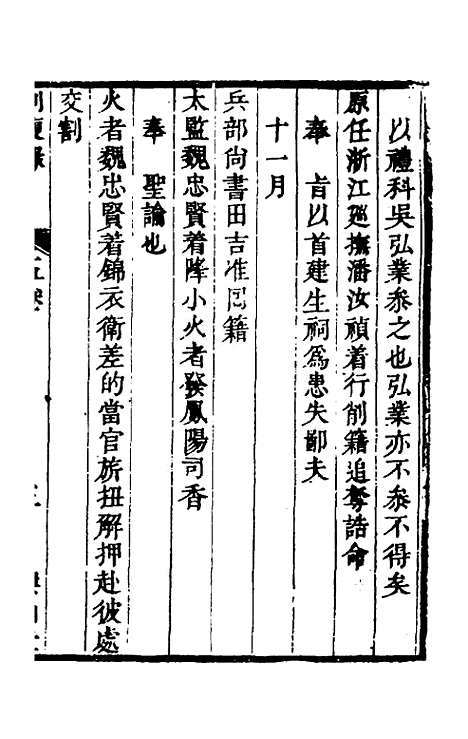 以禮科吳弘業叅之也弘業亦不叅不得矣
原任浙江廵撫潘汝禎着行削籍追奪誥命
奉　旨以首建生祠爲患失鄙夫
十一月
兵部尚書田吉准囘籍
太監魏忠賢着降小火者發鳳陽司香
奉　聖諭也
火者魏忠賢着錦衣衛差的當官旂扭解押赴彼處
交割